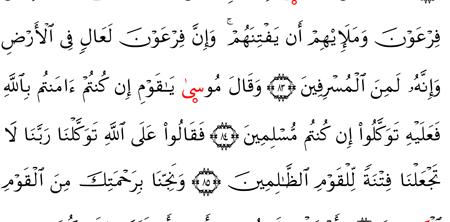 فِرْعَوْنَ وَمَلَإِيْهِمْ أَن يَفْتِنَهُمْ ۚ وَإِنَّ فِرْعَوْنَ لَعَالٍ فِى ٱلْأَرْضِ
وَإِنَّهُۥ لَمِنَ ٱلْمُسْرِفِينَ ﴿٨٣﴾ وَقَالَ مُوسَىٰ يَـٰقَوْمِ إِن كُنتُمْ ءَامَنتُم بِٱللَّهِ
فَعَلَيْهِ تَوَكَّلُوٓا۟ إِن كُنتُم مُّسْلِمِينَ ﴿٨٤﴾ فَقَالُوا۟ عَلَى ٱللَّهِ تَوَكَّلْنَا رَبَّنَا لَا
تَجْعَلْنَا فِتْنَةً لِّلْقَوْمِ ٱلظَّـٰلِمِينَ ﴿٨٥﴾ وَنَجِّنَا بِرَحْمَتِكَ مِنَ ٱلْقَوْمِ